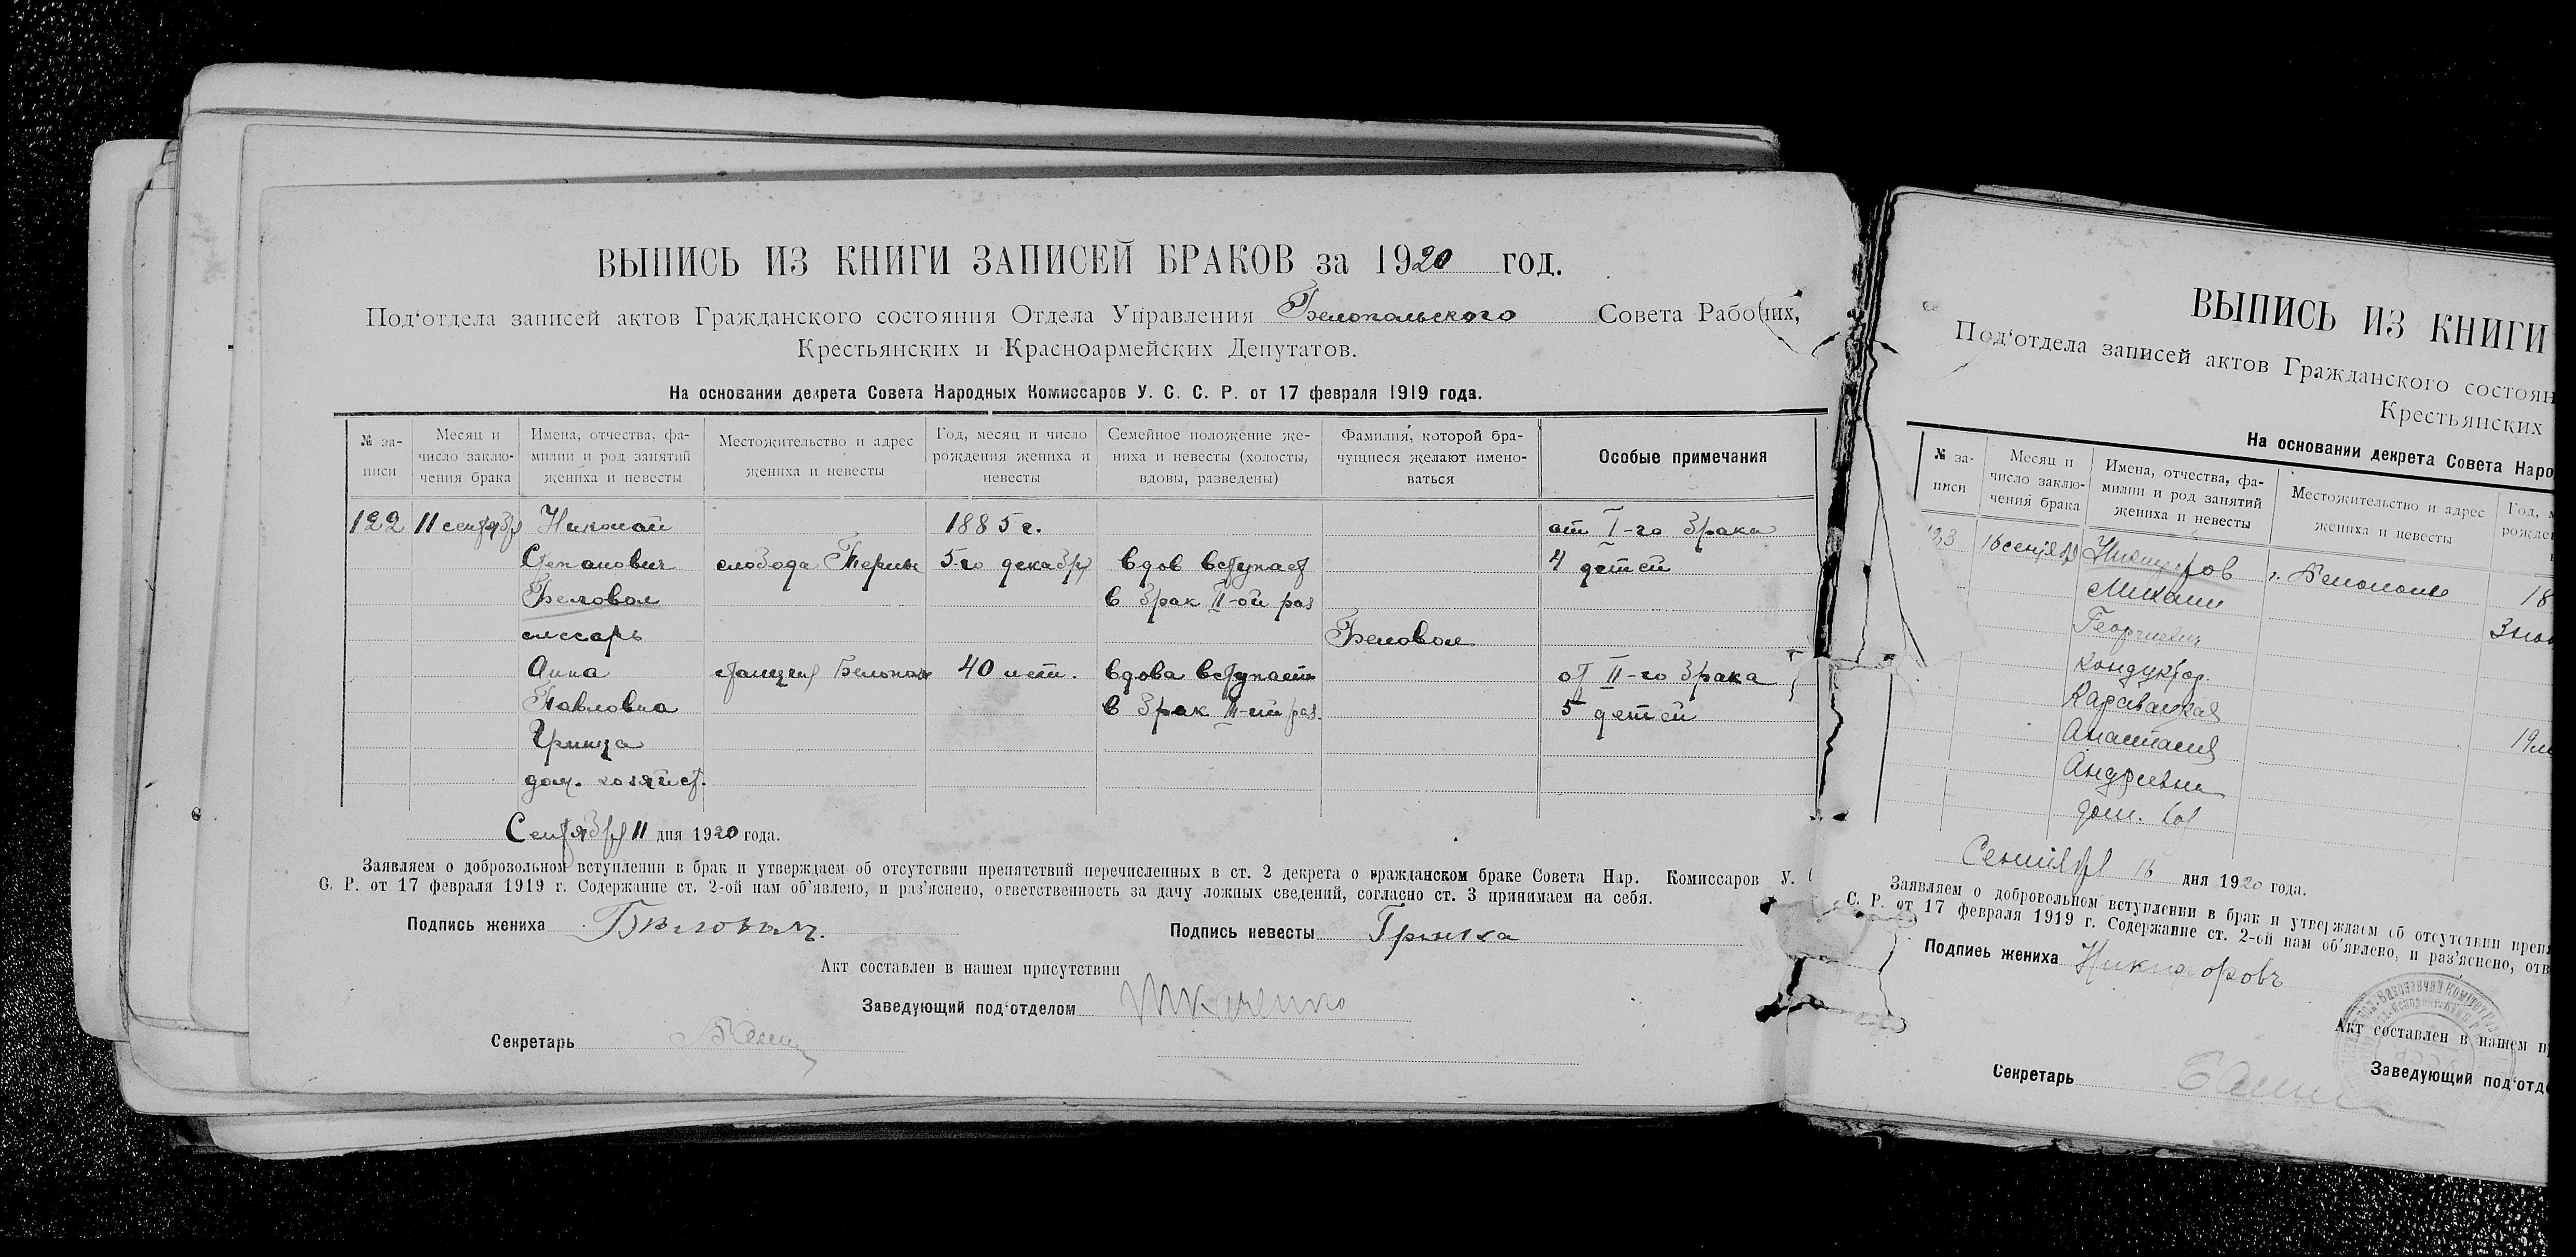 ВЫПИСЬ ИЗ КНИГИ ЗАПИСЕЙ БРАКОВ за 1920 год.
Под‘отдела записей актов Гражданского состояния Отдела Управления Белопольского Совета Рабочих,
Крестьянских и Красноармейских Депутатов.
На основании декрета Совета Народных Комиссаров У. С. С. Р. от 17 февраля 1919 года.
№ за-
писи
Месяц и
число заклю-
чения брака
Имена, отчества, фа-
милии и род занятий
жениха и невесты
Местожительство и адрес
жениха и невесты
Год, месяц и число
рождения жениха и
невесты
Семейное положение же-
ниха и невесты (холосты,
вдовы, разведены)
Фамилия, которой бра-
чущиеся желают имено-
ваться
Особые примечания
122 11 сентября Николай 1885 г. от I-го брака
Степанович слобода 5-го декабря вдов вступает 4 детей
Беловол в брак II-ой раз
слесарь Беловол
Анна станция Белополье 40 лет. вдова вступает от II-го брака
Павловна в брак III-ий раз. 5 детей
Гринза
дом. хозяйст.
Сентября 11 дня 1920 года.
Заявляем о добровольном вступлении в брак и утверждаем об отсутствии препятствий перечисленных в ст. 2 декрета о гражданском браке Совета Нар. Комиссаров У.
С. Р. от 17 февраля 1919 г. Содержание ст. 2-ой нам об’явлено, и раз’яснено, ответственность за дачу ложных сведений, согласно ст. 3 принимаем на себя.
Подпись жениха Беловолъ. Подпись невесты
Акт составлен в нашем присутствии
Заведующий под‘отделом Ткаченко
Секретарь
ВЫПИСЬ ИЗ КНИГИ
Под‘отдела записей актов Гражданского состоян
Крестьянских
На основании декрета Совета Наро
№ за-
писи
Месяц и
число заклю-
чения брака
Имена, отчества, фа-
милии и род занятий
жениха и невесты
Местожительство и адрес
жениха и невесты
Год, м
рожден
16 сентября Никифоров г. Белополье 18
Михаил
Георгиевич
кондуктор.
Анастасия 19
Андреевна
дом. хоз
Сентября 16 дня 1920 года.
Заявляем о добровольном вступлении в брак и утверждаем об отсутствии преня
С. Р. от 17 февраля 1919 г. Содержание ст. 2-ой нам об’явлено, и раз’яснено, отв
Подпись жениха Никифоровъ
Акт составлен в нашем п
Заведующий под‘отд
Секретарь